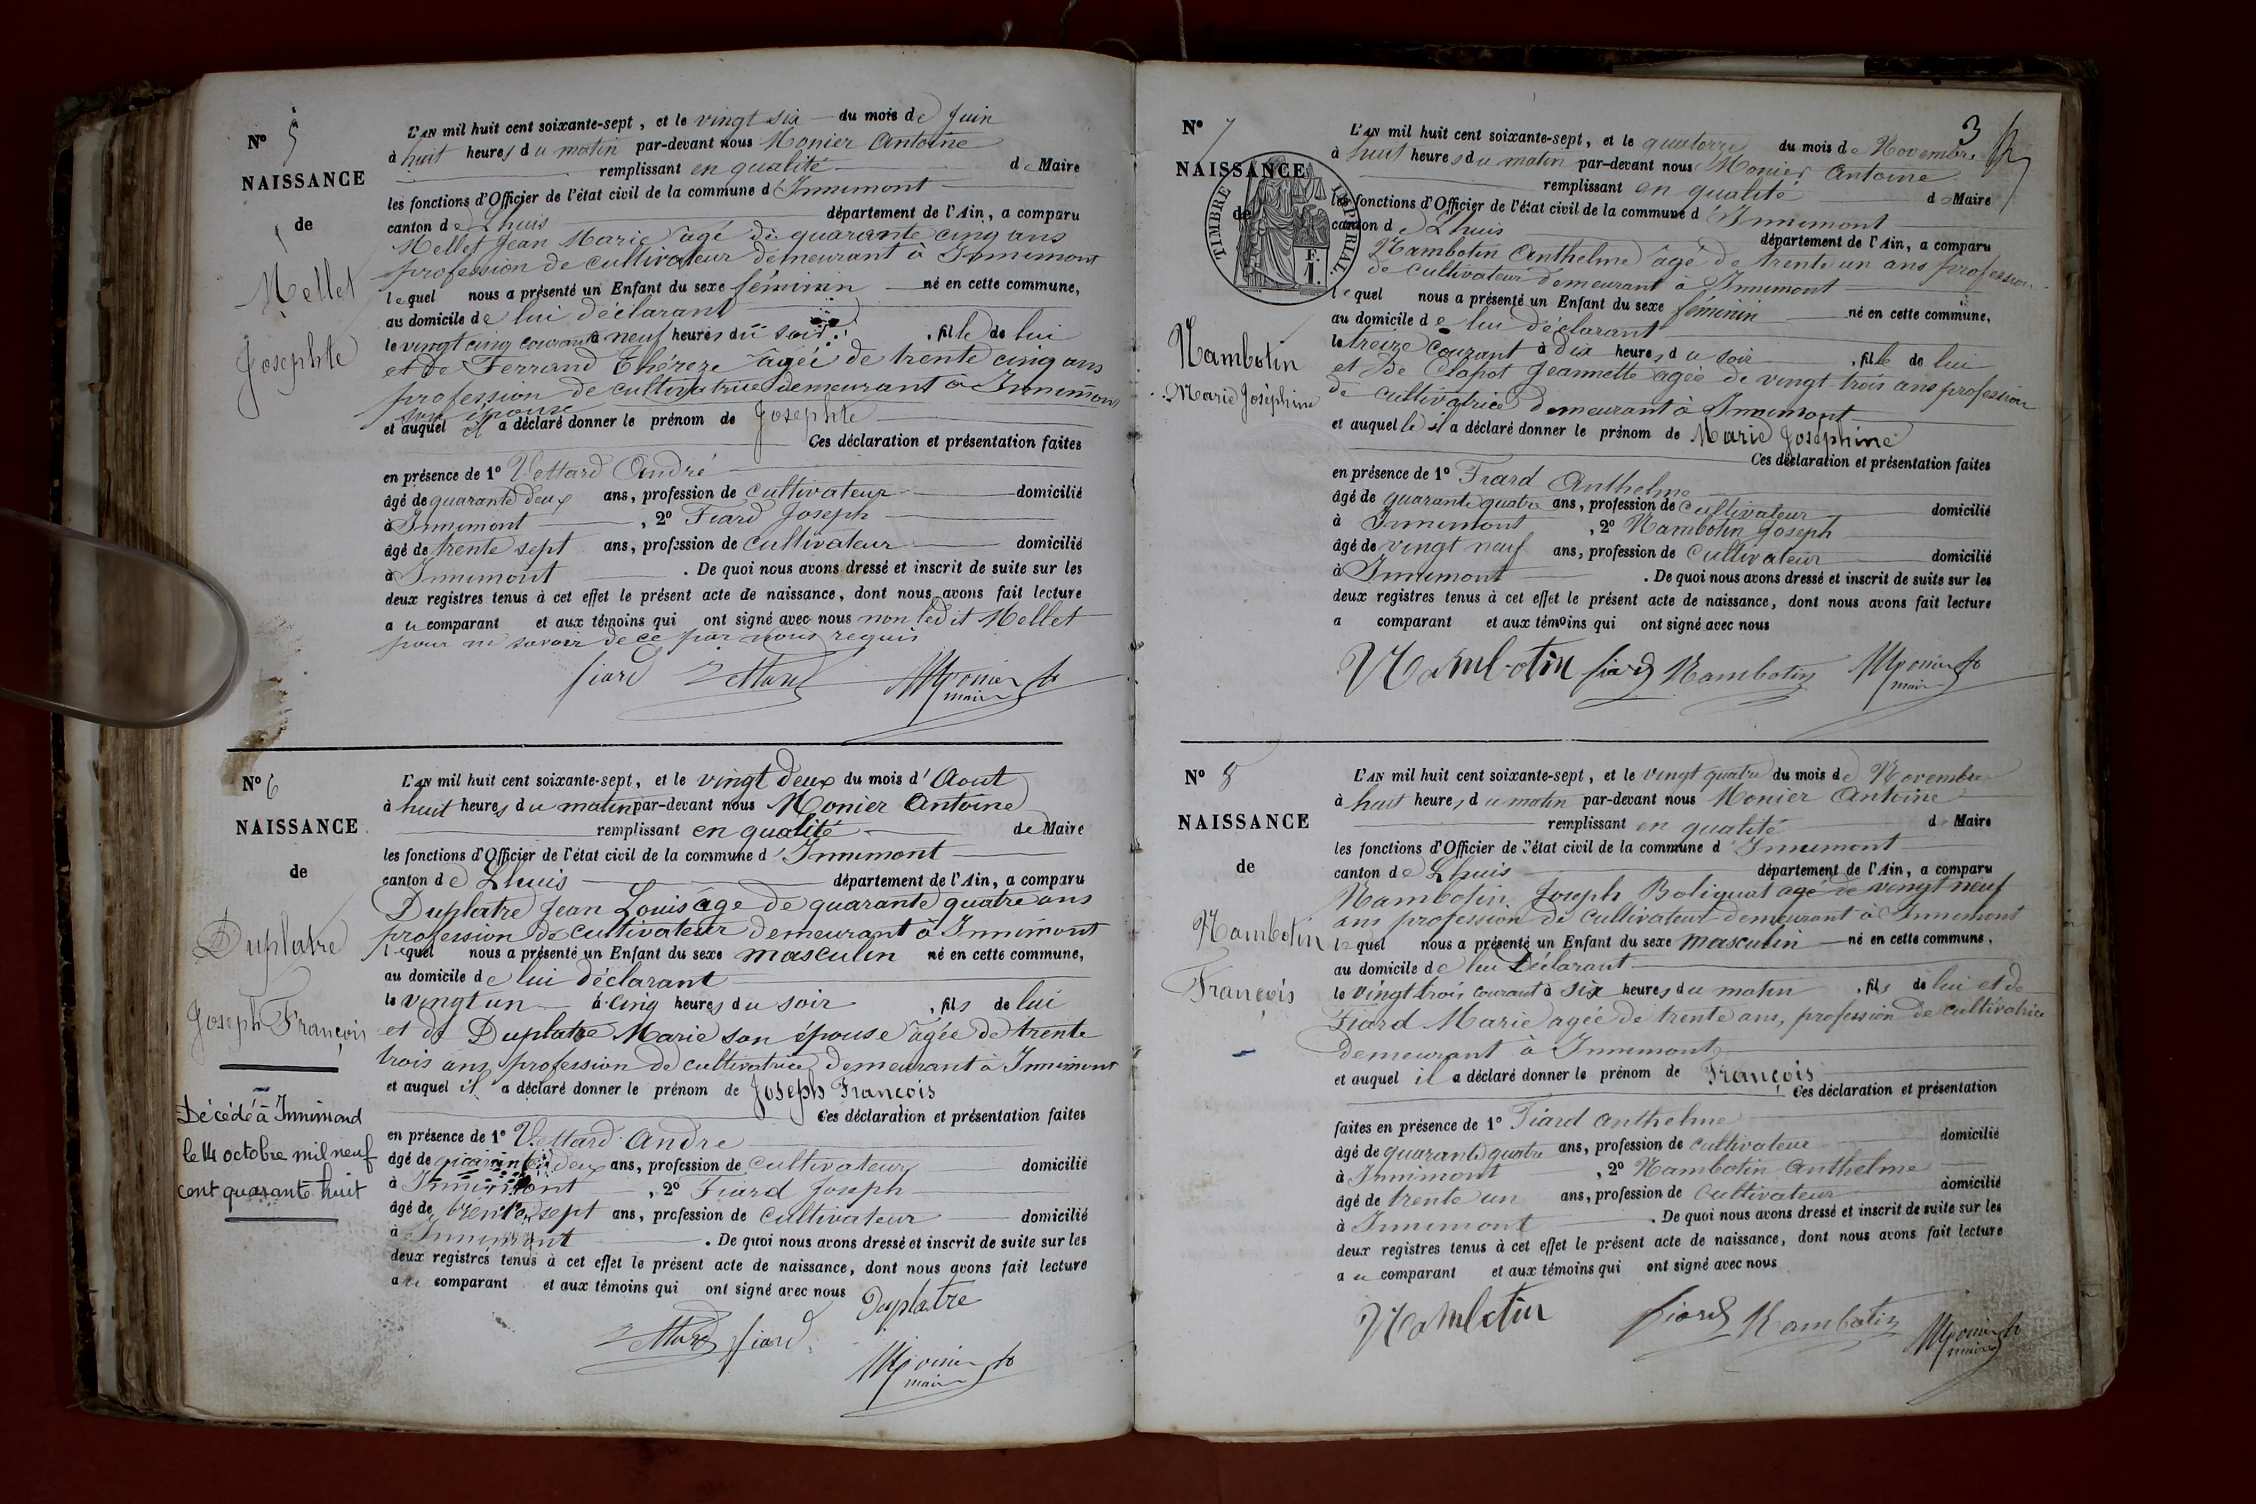 N° 5
NAISSANCE
de
Mellet
Josephte
L'AN mil huit cent soixante-sept, et le vingt six du mois de Juin
à huit heures du matin par-devant nous Monier Antoine
remplissant en qualité de Maire
les fonctions d'Officier de l'état civil de la commune d'Innimont
canton de Lhuis département de l'Ain, a comparu
Mellet Jean Marie âgé de quarante cinq ans
profession de cultivateur demeurant à Innimont
lequel nous a présenté un Enfant du sexe féminin né en cette commune,
au domicile de lui déclarant
le vingt cinq courant à neuf heures du soir, fille de lui
et de Ferrand Thérèze âgée de trente cinq ans
profession de cultivatrice demeurant à Innimont
son épouse
et auquel il a déclaré donner le prénom de Josephte
Ces déclaration et présentation faites
en présence de 1° Vettard André
âgé de quarante deux ans, profession de cultivateur domicilié
à Innimont, 2° Fiard Joseph
âgé de trente sept ans, profession de cultivateur domicilié
à Innimont. De quoi nous avons dressé et inscrit de suite sur les
deux registres tenus à cet effet le présent acte de naissance, dont nous avons fait lecture
au comparant et aux témoins qui ont signé avec nous non ledit Mellet
pour ne savoir de ce par nous requis
fiard Vettard Monier
maire
N° 6
NAISSANCE
de
Duplatre
Joseph François
Décédé à Innimond
le 14 octobre mil neuf
cent quarante huit
L'AN mil huit cent soixante-sept, et le vingt deux du mois d'Aout
à huit heures du matin par-devant nous Monier Antoine
remplissant en qualité de Maire
les fonctions d'Officier de l'état civil de la commune d'Innimont
canton de Lhuis département de l'Ain, a comparu
Duplatre Jean Louis âgé de quarante quatre ans
profession de cultivateur demeurant à Innimont
lequel nous a présenté un Enfant du sexe masculin né en cette commune,
au domicile de lui déclarant
le vingt un à cinq heures du soir, fils de lui
et de Duplatre Marie son épouse âgée de trente
trois ans profession de cultivatrice demeurant à Innimont
et auquel il a déclaré donner le prénom de Joseph François
Ces déclaration et présentation faites
en présence de 1° Vettard André
âgé de quarante deux ans, profession de cultivateur domicilié
à Innimont, 2° Fiard Joseph
âgé de trente sept ans, profession de cultivateur domicilié
à Innimont. De quoi nous avons dressé et inscrit de suite sur les
deux registres tenus à cet effet le présent acte de naissance, dont nous avons fait lecture
au comparant et aux témoins qui ont signé avec nous Duplatre
Vettard fiard Monier
maire
3
N° 7
NAISSANCE
de
TIMBRE IMPÉRIAL
F.
1.
Nambotin
Marie Joséphine
L'AN mil huit cent soixante-sept, et le quatorze du mois de Novembre
à huit heures du matin par-devant nous Monier Antoine
remplissant en qualité de Maire
les fonctions d'Officier de l'état civil de la commune d'Innimont
canton de Lhuis département de l'Ain, a comparu
Nambotin Anthelme âgé de trente un ans profession
de cultivateur demeurant à Innimont
lequel nous a présenté un Enfant du sexe féminin né en cette commune,
au domicile de lui déclarant
le treize courant à dix heures du soir, fille de lui
et de Clapot Jeannette âgée de vingt trois ans profession
de cultivatrice demeurant à Innimont
et auquelle il a déclaré donner le prénom de Marie Joséphine
Ces déclaration et présentation faites
en présence de 1° Fiard Anthelme
âgé de quarante quatre ans, profession de cultivateur domicilié
à Innimont, 2° Nambotin Joseph
âgé de vingt neuf ans, profession de cultivateur domicilié
à Innimont. De quoi nous avons dressé et inscrit de suite sur les
deux registres tenus à cet effet le présent acte de naissance, dont nous avons fait lecture
a comparant et aux témoins qui ont signé avec nous
Nambotin fiard Nambotin Monier
maire
N° 8
NAISSANCE
de
Nambotin
François
L'AN mil huit cent soixante-sept, et le vingt quatre du mois de Novembre
à huit heures du matin par-devant nous Monier Antoine
remplissant en qualité de Maire
les fonctions d'Officier de l'état civil de la commune d'Innimont
canton de Lhuis département de l'Ain, a comparu
Nambotin Joseph Boliquat agé de vingt neuf
ans profession de cultivateur demeurant à Innimont
lequel nous a présenté un Enfant du sexe masculin né en cette commune,
au domicile de lui déclarant
le vingt trois courant à six heures du matin, fils de lui et de
Fiard Marie agée de trente ans, profession de cultivatrice
demeurant à Innimont
et auquel il a déclaré donner le prénom de François
Ces déclaration et présentation
faites en présence de 1° Fiard Anthelme
âgé de quarante quatre ans, profession de cultivateur domicilié
à Innimont, 2° Nambotin Anthelme
âgé de trente un ans, profession de cultivateur domicilié
à Innimont. De quoi nous avons dressé et inscrit de suite sur les
deux registres tenus à cet effet le présent acte de naissance, dont nous avons fait lecture
au comparant et aux témoins qui ont signé avec nous
Nambotin fiard Nambotin Monier
maire